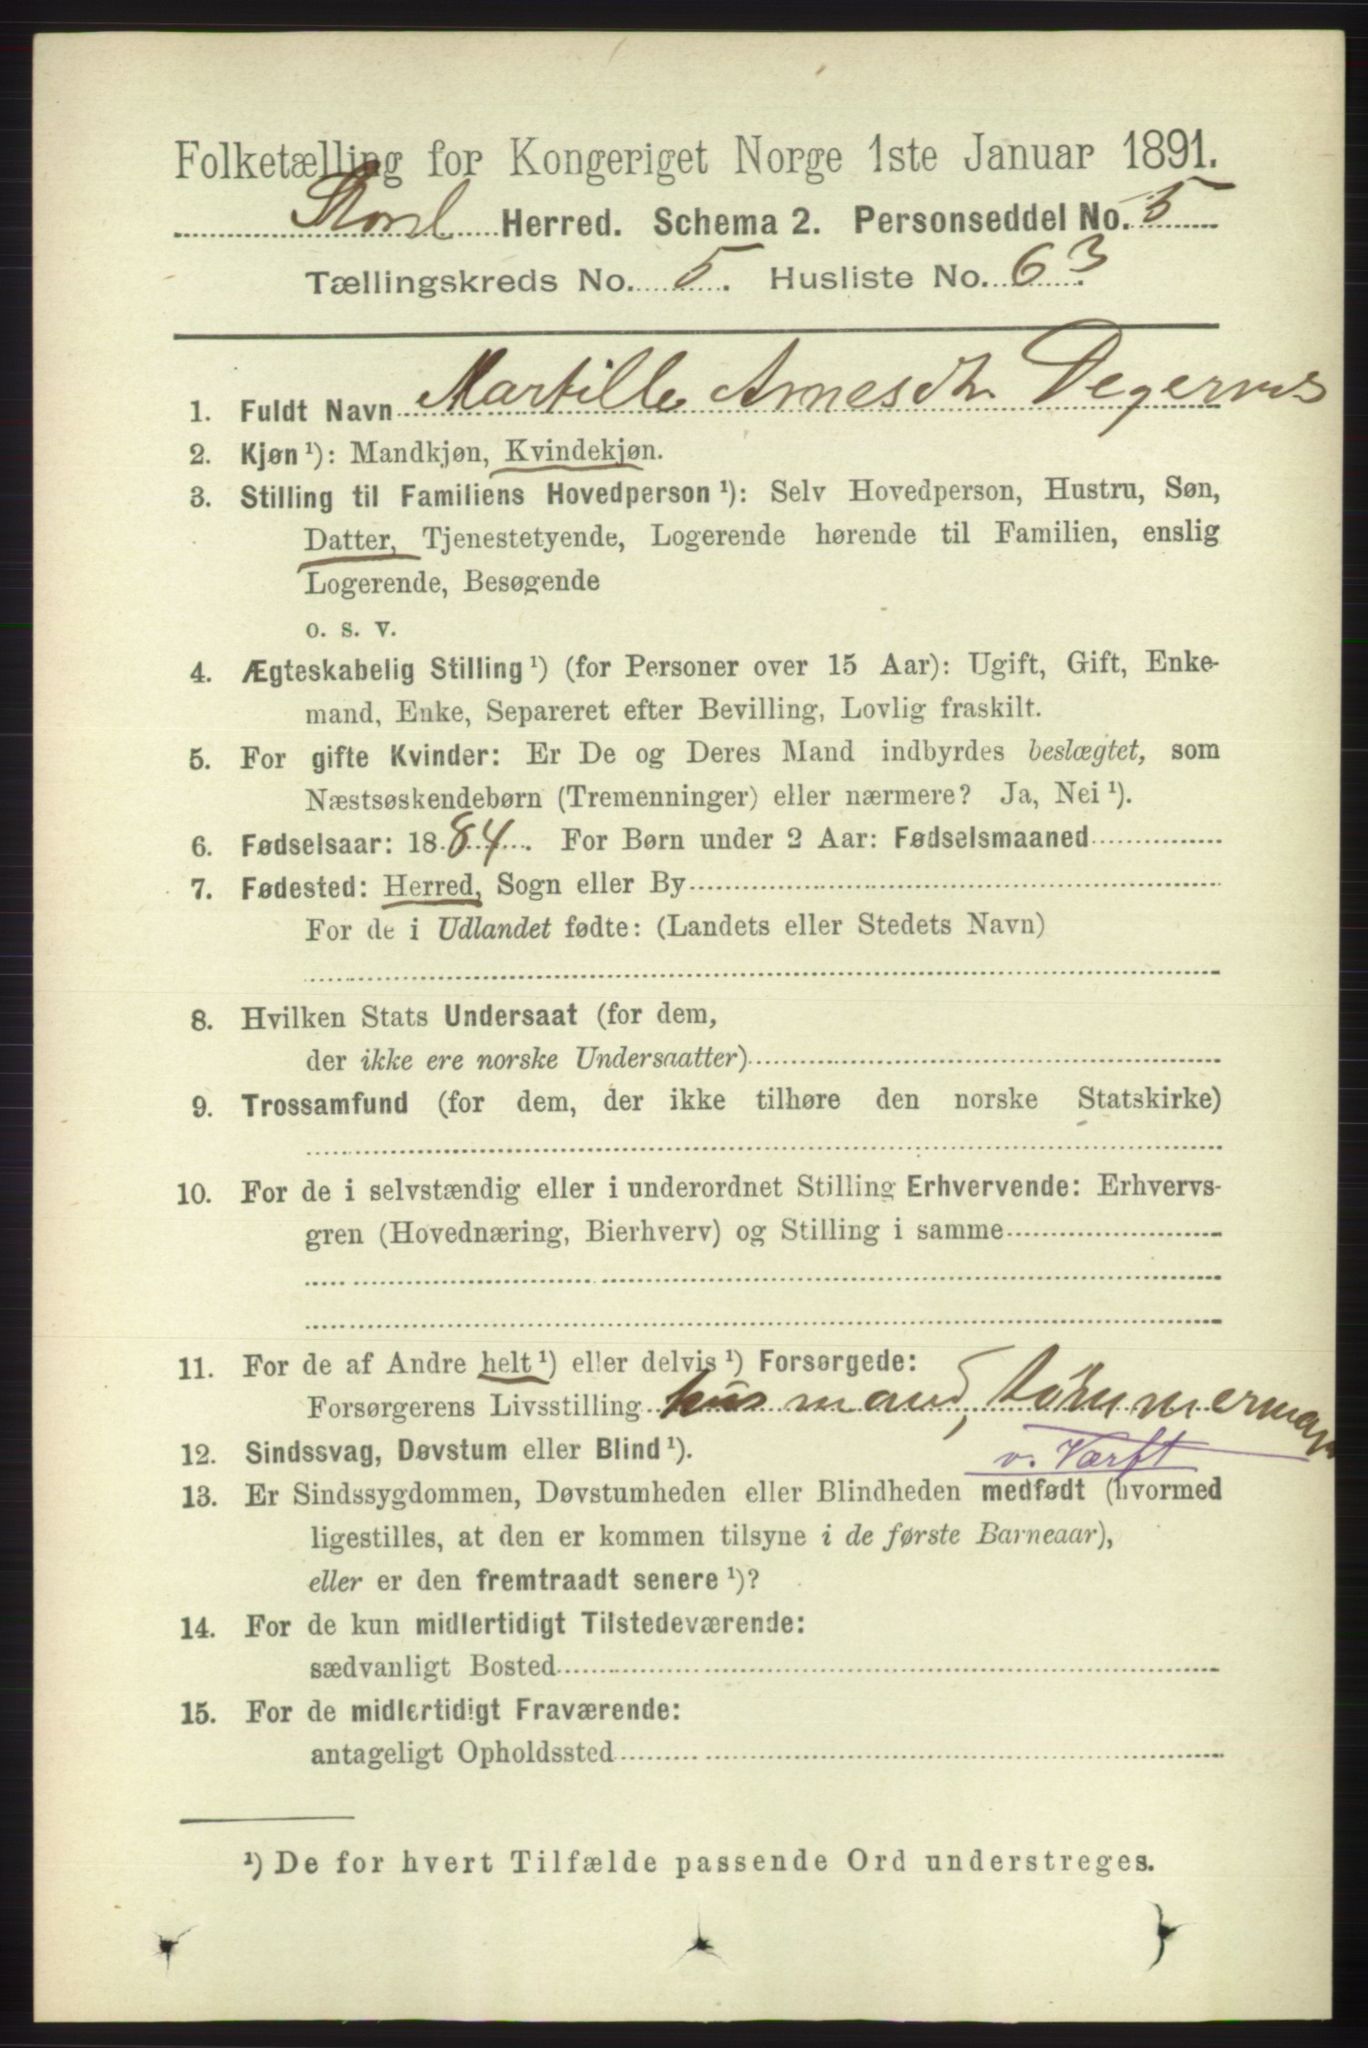 Folketælling for Kongeriget Norge 1ste Januar 1891.
Stord Herred. Schema 2. Personseddel No. 5
Tællingskreds No. 5. Husliste No. 63
1. Fuldt Navn Martille Arnesdtr
2. Kjøn ¹): Mandkjøn, Kvindekjøn.
3. Stilling til Familiens Hovedperson ¹): Selv Hovedperson, Hustru, Søn,
Datter, Tjenestetyende, Logerende hørende til Familien, enslig
Logerende, Besøgende
o. s. v.
4. Ægteskabelig Stilling ¹) (for Personer over 15 Aar): Ugift, Gift, Enke-
mand, Enke, Separeret efter Bevilling, Lovlig fraskilt.
5. For gifte Kvinder: Er De og Deres Mand indbyrdes beslægtet, som
Næstsøskendebørn (Tremenninger) eller nærmere? Ja, Nei ¹).
6. Fødselsaar: 1884. For Børn under 2 Aar: Fødselsmaaned
7. Fødested: Herred, Sogn eller By
For de i Udlandet fødte: (Landets eller Stedets Navn)
8. Hvilken Stats Undersaat (for dem,
der ikke ere norske Undersaatter)
9. Trossamfund (for dem, der ikke tilhøre den norske Statskirke)
10. For de i selvstændig eller i underordnet Stilling Erhvervende: Erhvervs-
gren (Hovednæring, Bierhverv) og Stilling i samme
11. For de af Andre helt ¹) eller delvis ¹) Forsørgede:
Forsørgerens Livsstilling husmand, tømmermand
v. Værft
12. Sindssvag, Døvstum eller Blind ¹).
13. Er Sindssygdommen, Døvstumheden eller Blindheden medfødt (hvormed
ligestilles, at den er kommen tilsyne i de første Barneaar),
eller er den fremtraadt senere ¹)?
14. For de kun midlertidigt Tilstedeværende:
sædvanligt Bosted
15. For de midlertidigt Fraværende:
antageligt Opholdssted
¹) De for hvert Tilfælde passende Ord understreges.